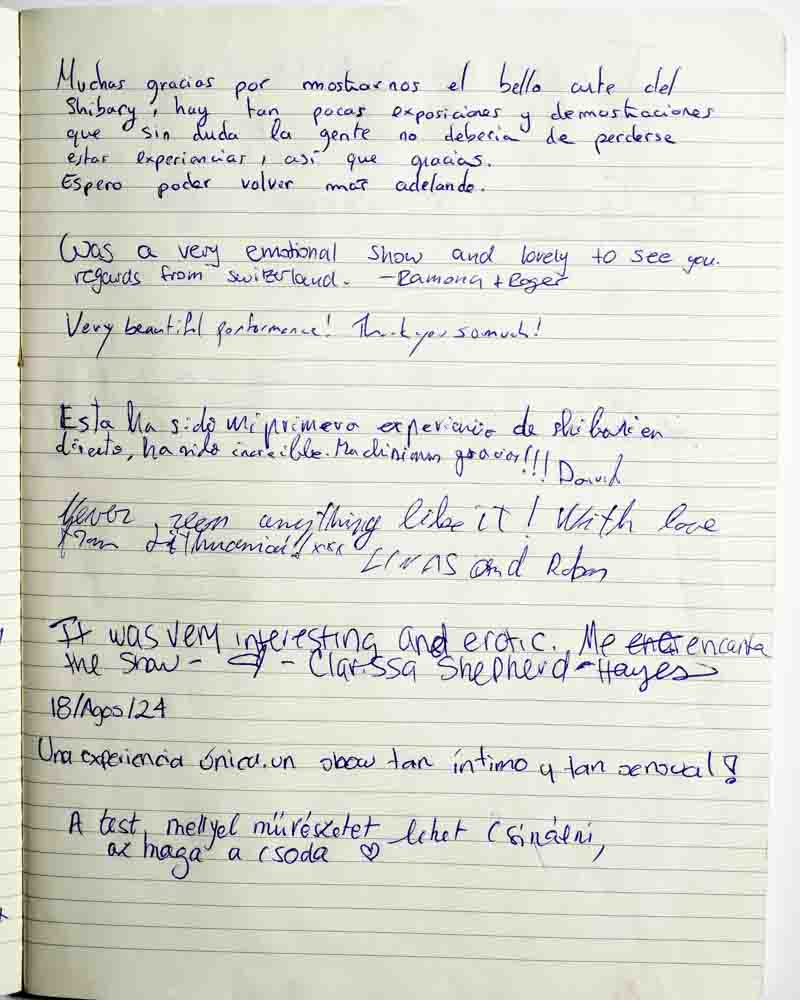 Muchas gracias por mostrarnos el bello arte del
Shibary, hay tan pocas exposiciones y demostraciones
que sin duda la gente no deberia de perderse
estas experiencias, así que gracias.
Espero poder volver mas adelando.
Was a very emotional show and lovely to see you.
regards from switzerland. - Ramona + Roger
Very beautiful performance! Thank you so much!
Esta ha sido mi primera experiencia de shibari en
directo, ha sido increible. Muchisimas gracias!!! David
Never seen anything like it! With love
from Lithuania! xxx and
It was very interesting and erotic. Me encanta
the show - - Clarissa Shepherd-Hayes
18/Agos/24
Una experiencia única. un show tan íntimo y tan sensual!
A test, mellyel művészetet lehet csinálni,
az maga a csoda ♡